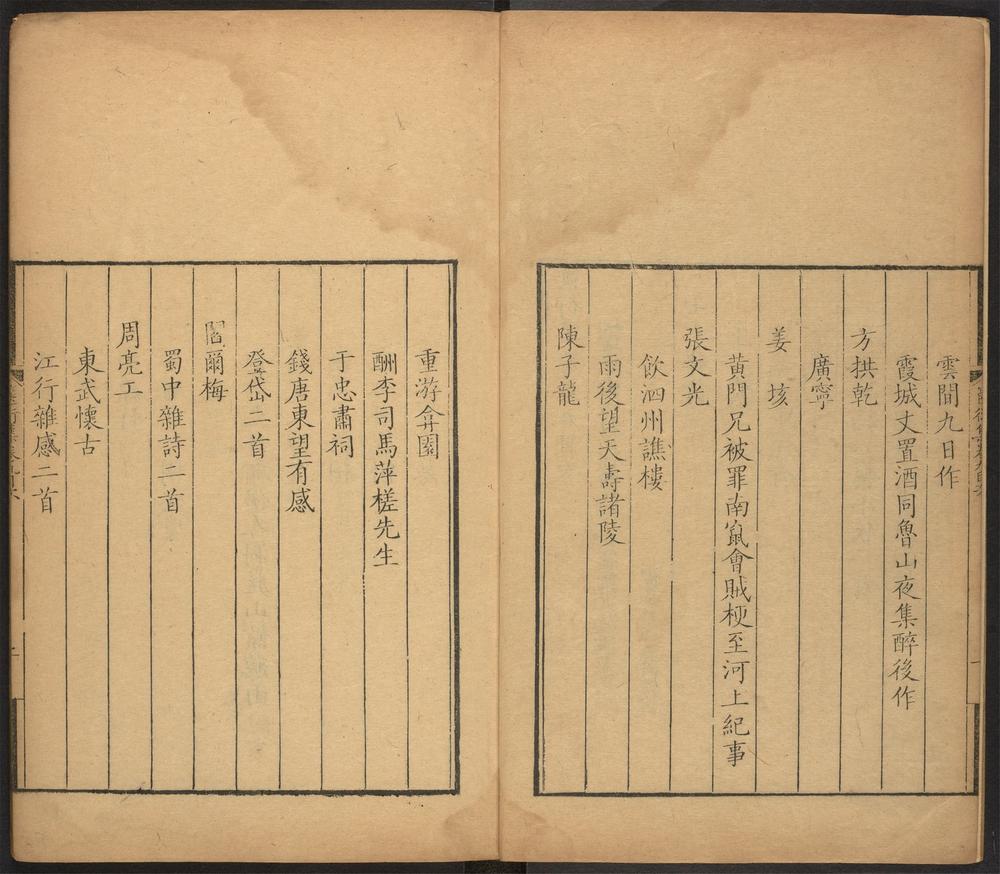 雲間九日作
霞城丈置酒同魯山夜集醉後作
方拱乾
廣寧
姜垓
黃門兄被罪南竄會賊梗至河上紀事
張文光
飲泗州譙樓
雨後望天壽諸陵
陳子龍
重游弇園
酬李司馬萍槎先生
于忠肅祠
錢唐東望有感
登岱二首
閻爾梅
蜀中雜詩二首
周亮工
東武懷古
江行雜感二首